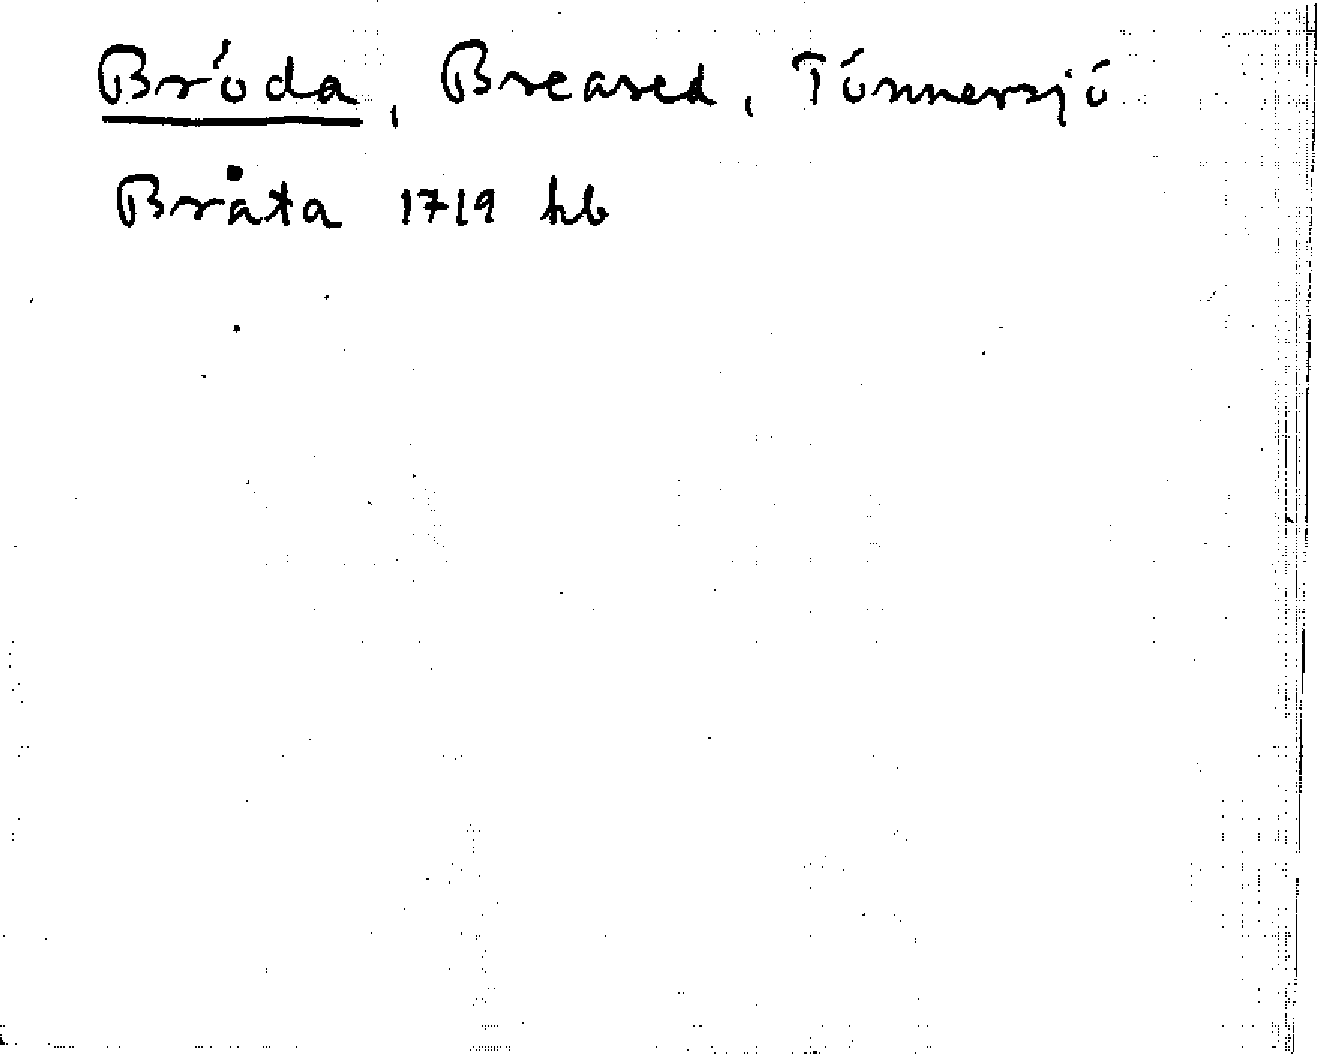 Bröda, Breared, Tönnersjö
Bråta 1719 hb